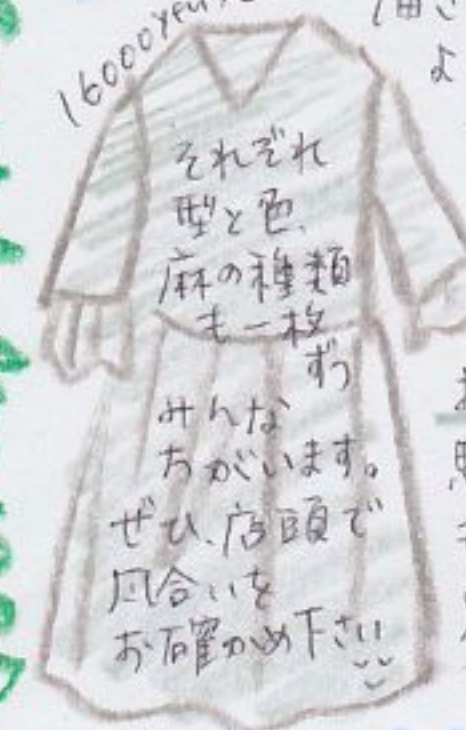 16000yen
それぞれ
型と色、
麻の種類
も一枚
ずつ
みんな
ちがいます。
ぜひ、店頭で
風合いを
お確かめ下さい